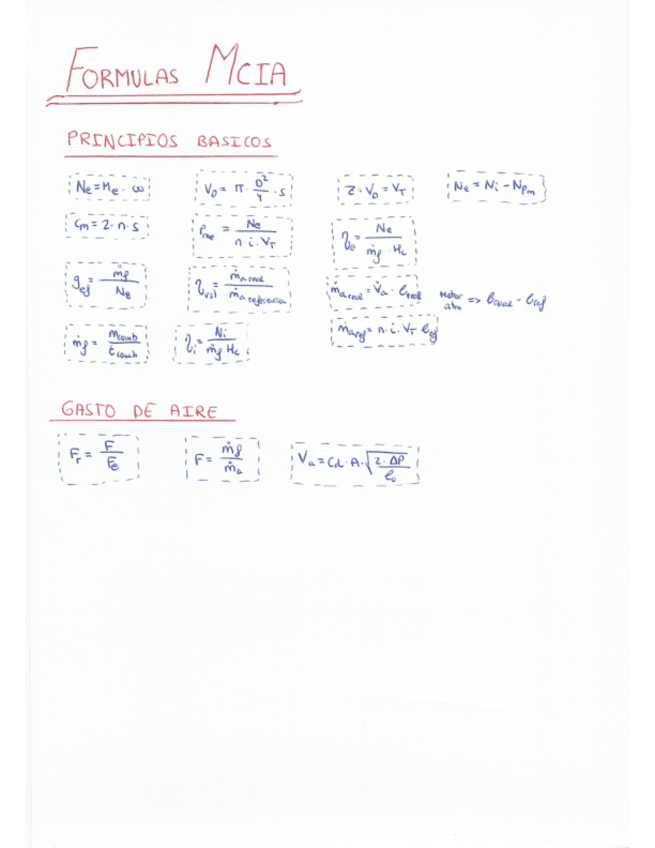 FORMULAS MCIA
PRINCIPIOS BASICOS
Ne = Me · ω
V_D = π · D²/4 · s
z · V_D = V_T
Ne = Ni - Npm
Cm = 2 · n · s
Pme = Ne / (n · i · V_T)
η_e = Ne / (ṁf · Hc)
g_ef = ṁf / Ne
η_vol = ṁa real / ṁa referencia
ṁa real = V̇a · ρreal
Motor => ρreal = ρref
ṁf = mcomb / tcomb
η_i = Ni / (ṁf Hc)
ṁaref = n · i · V_T ρref
GASTO DE AIRE
Fr = F / Fe
F = ṁf / ṁa
Va = Cd · A · √(2 · ΔP / ρo)